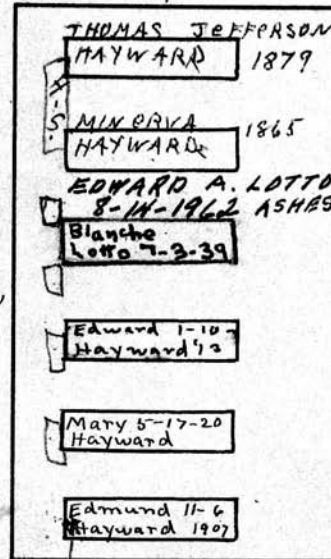 THOMAS JEFFERSON
HAYWARD 1879
H.S.
MINERVA 1865
HAYWARD
EDWARD A. LOTTO
8-14-1962 ASHES
Blanche
Lotto 7-3-39
Edward 1-10-
Hayward '13
Mary 5-17-20
Hayward
Edmund 11-6
Hayward 1907